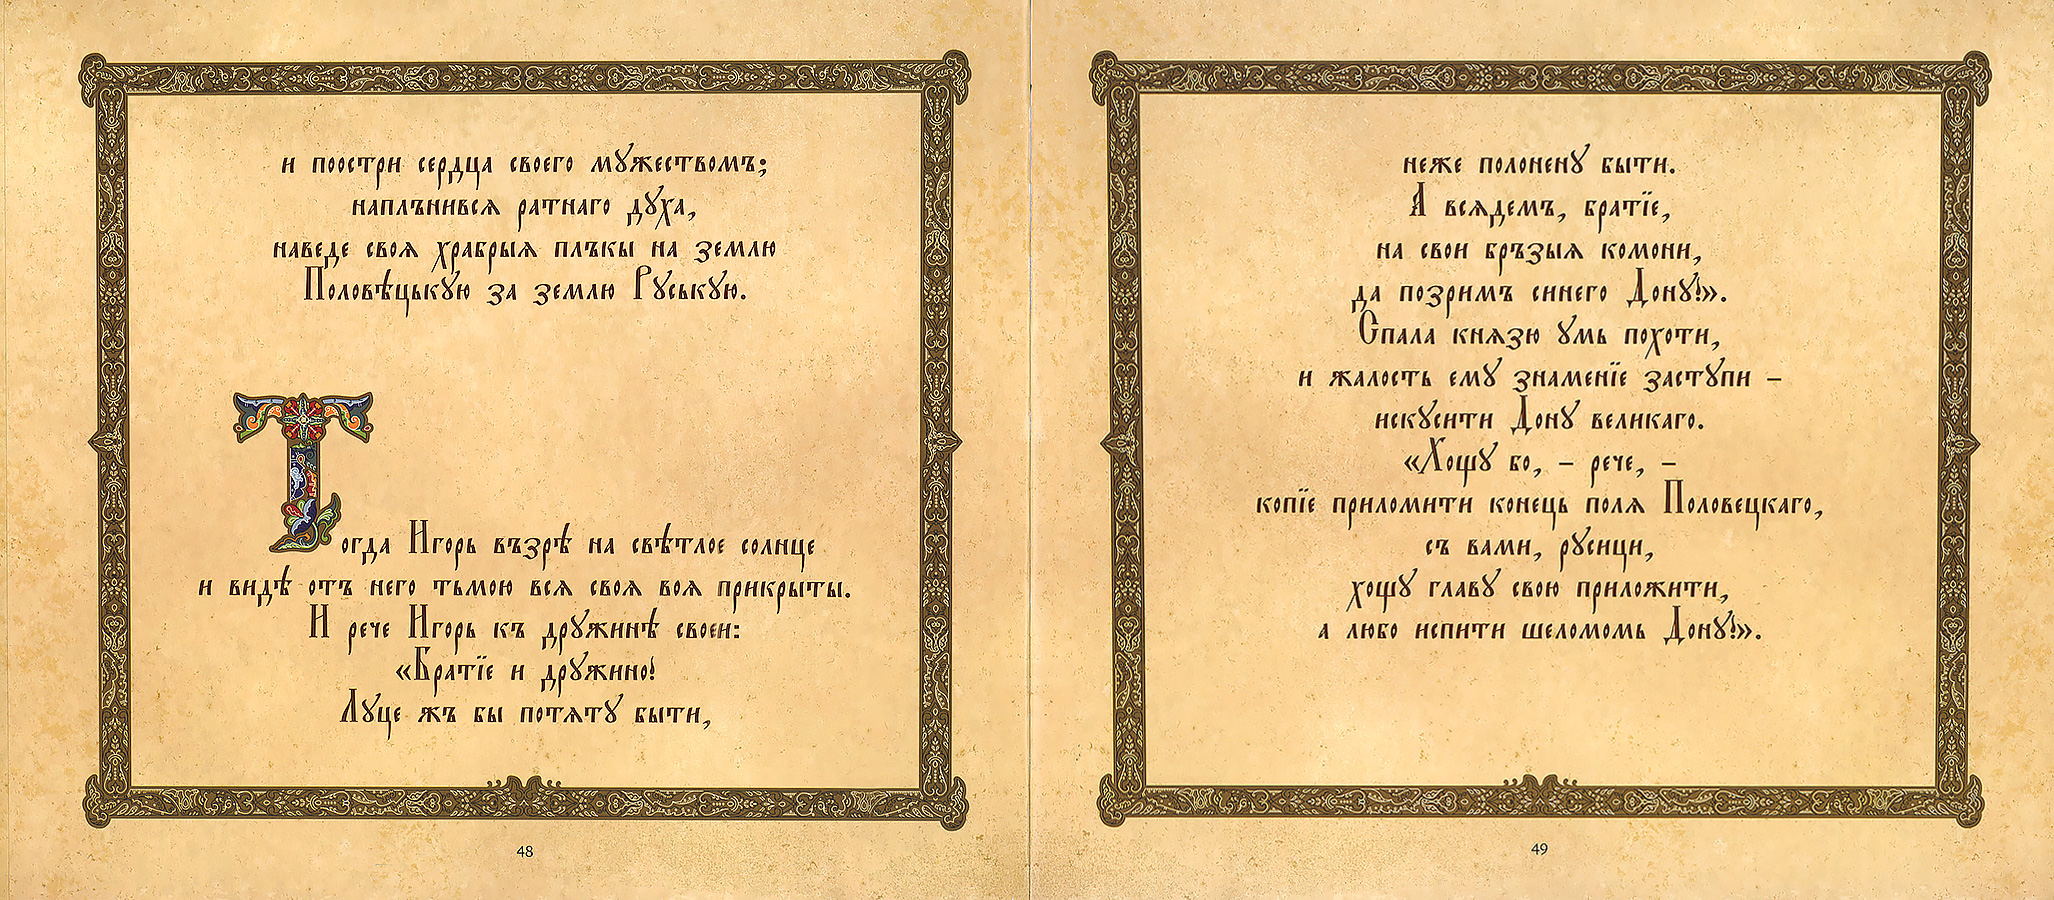 и поостри сердца своего мужествомъ;
наплънився ратнаго духа,
наведе своя храбрыя плъкы на землю
Половѣцькую за землю Руськую.
Тогда Игорь възрѣ на свѣтлое солнце
и видѣ отъ него тьмою вся своя воя прикрыты.
И рече Игорь къ дружинѣ своеи:
«Братїе и дружино!
Луце жъ бы потяту быти,
48
неже полонену быти.
А всядемъ, братїе,
на свои бръзыя комони,
да позримъ синего Дону!».
Спала князю умь похоти,
и жалость ему знаменїе заступи –
искусити Дону великаго.
«Хощу бо, – рече, –
копїе приломити конець поля Половецкаго,
съ вами, русици,
хощу главу свою приложити,
а любо испити шеломомь Дону!».
49